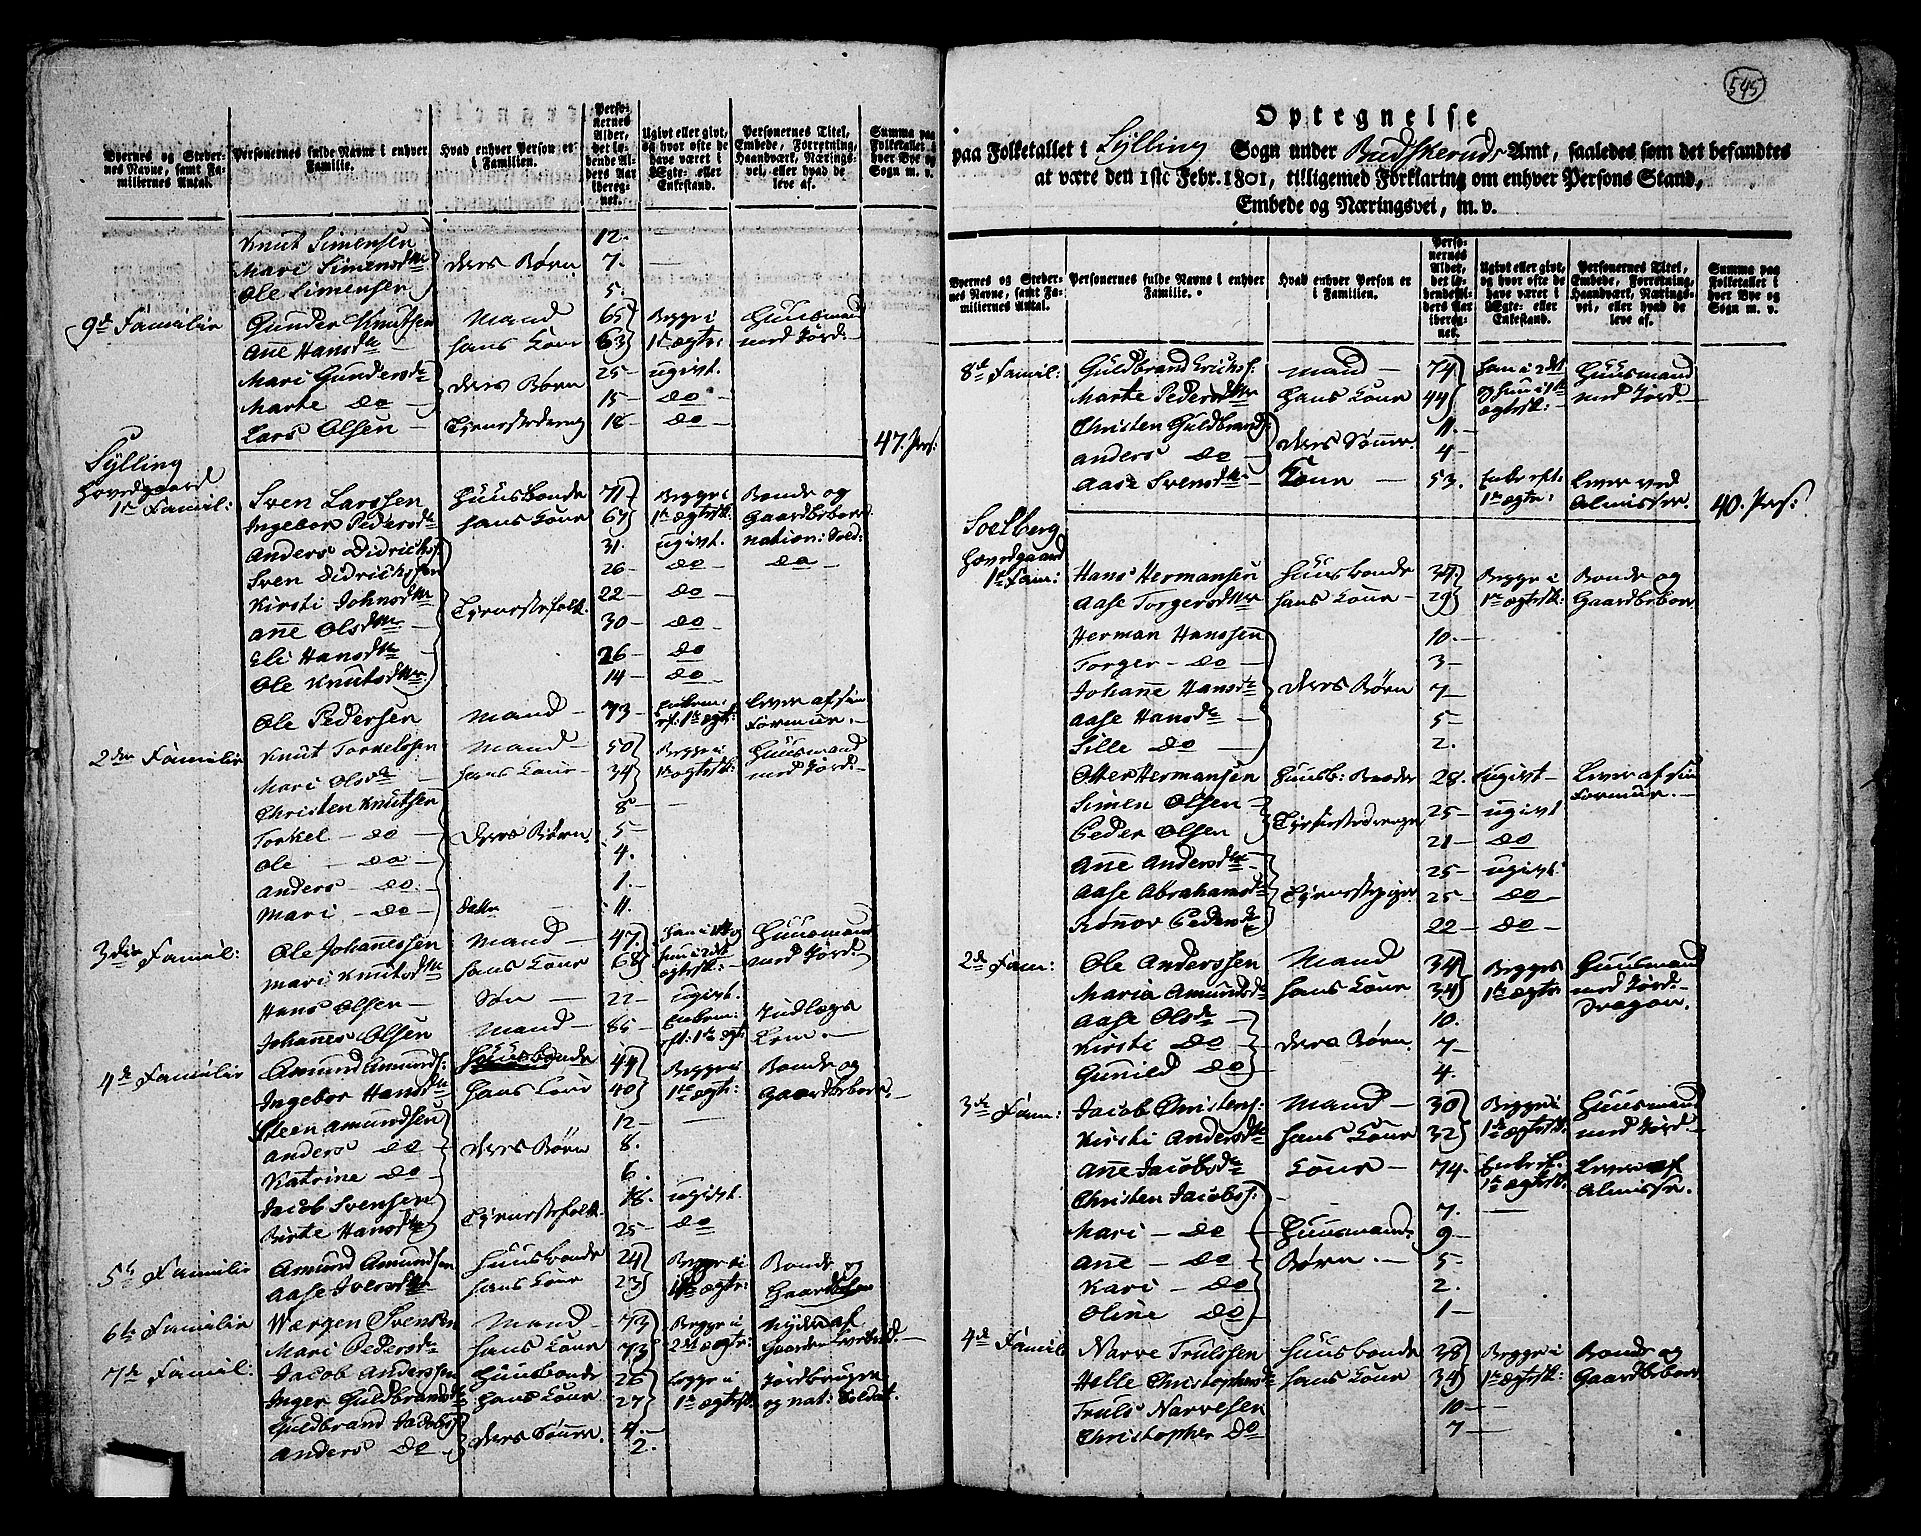 Byernes og Stedernes Navne, samt Familiernes Antal. | Personernes fulde Navne i enhver Familie. | Hvad enhver Person er i Familien. | Personernes Alder, det løbende Alders Aar iberegnet. | Ugivt eller givt, og hvor ofte de have været i Ægte- eller Enkestand. | Personernes Titel, Embede, Forretning, Haandværk, Næringsvei, eller hvad de leve af. | Summa paa Folketallet i hver Bye og Sogn m. v.
Knut Simensen 12.
Mari Simensdtr deres Børn 7. —
Ole Simensen 5.
9de Familie Gunder Knutsen Mand 65 Begge i Huusmand
Ane Hansdtr — hans Kone 63 1te ægte: med Jord.
Mari Gundersdtr deres Børn 25 — ugivt.
Marte do — 15 — do —
Lars Olsen — Tjenestedreng 18 — do — 47. Pers:
Sylling
Hovedgaard
1te Famil: Sven Larssen Huusbonde 71 Begge i Bonde og
Ingebor Pedersdtr hans Kone 67 1te ægtsk: Gaardbeboer
Anders Didrichs: 31. ugivt. nation: Sold:
Sven Didrichssen 26 — do — do —
Kirsti Johnsdtr Tjenestefolk. 22 — do
Ane Olsdtr 30 — do
Eli Hansdtr 26 — do
Ole Knutsdtr 14 — do
Ole Pedersen Mand — 73 — Enkem: eft: 1te ægt: Lever af sin Formue. —
2den Familie Knut Torkelssen Mand — 50 Begge i Huusmand
Mari Olsdtr hans Kone — 34 1te ægtsk: med Jord.
Christen Knutsen 8 —
Torkel — do — deres Børn. 5 —
Ole — do — 4.
Anders — do — 1.
Mari — do — datter 11.
3die Famil: Ole Johanessen Mand — 47. Huusmand
Mari Knutsdtr hans Kone 68 hun i 2det ægtsk: — med Jord.
Hans Olsen — Søn — 22 — ugivt.
Johanes Olsen Mand — 85 — Enkem: eft: 1te ægt: Indlægs Lem. —
4de Familie Amund Amunds: Huusbonde 44 Begge i Bonde og
Ingebor Hansdtr hans Kone 40 1te ægt: Gaardbeboer. —
Steen Amundsen 12 —
Anders do deres Børn 8.
Katrine do 6.
Jacob Svensen Tjenestefolk 18. ugivt.
Birte Hansdtr 25 — do
5te Familie Amund Amundsen Huusbonde 24 Begge i Bonde og
Aase Iversdtr hans Kone 23 1te ægte: Gaardbeboer
6te Familie Svensen Mand — 73 Begge i Nyder af
Mari Pedersdtr hans Kone 73 2det ægte: Gaarden Levebrød. —
7de Famil: Jacob Anderssen Huusbonde 26 Begge i Jordbruger
Inger Guldbrandsdtr hans Kone 27 1te ægtsk: og nat: Soldat.
Guldbrand Jacobs: deres Sønner. 4. —
Anders do 2.
545
Optegnelse
paa Folketallet i Sylling Sogn under Budskeruds Amt, saaledes som det befandtes
at være den 1ste Febr. 1801, tilligemed Forklaring om enhver Persons Stand,
Embede og Næringsvei, m. v.
Byernes og Stedernes Navne, samt Familiernes Antal. | Personernes fulde Navne i enhver Familie. | Hvad enhver Person er i Familien. | Personernes Alder, det løbende Alders Aar iberegnet. | Ugivt eller givt, og hvor ofte de have været i Ægte- eller Enkestand. | Personernes Titel, Embede, Forretning, Haandværk, Næringsvei, eller hvad de leve af. | Summa paa Folketallet i hver Bye og Sogn m. v.
8de Famil: Guldbrand Erichs: Mand — 74 han i 2det Huusmand
Marte Pedersdtr hans Kone 44 hun i 1te ægtsk: — med Jord. —
Christen Guldbrands: deres Sønner 11. —
Anders do — 4 —
Aase Svensdtr — Kone — 53. Enke eft: 1te ægte: Lever ved Almisse. 40. Pers:
Soelberg
Hovedgaard
1te Fam: Hans Hermansen Huusbonde 34 Begge i Bonde og
Aase Torgersdtr hans Kone — 29 1te ægtsk: Gaardbeboer
Herman Hanssen 10. —
Torger — do — 3 —
Johane Hansdtr deres Børn 7 —
Aase Hansdtr — 5 —
Sille do — 2.
Otter Hermansen Huusb: Broder 28. ugivt — Lever af sin Formue. —
Simen Olsen — Tjenestedrenge 25 — ugivt
Peder Olsen 21 — do
Ane Andersdtr 25 — ugivt.
Aase Abrahamsdtr Tjenestepiger 25 — do —
Rønnov Pedersdtr 22 — do —
2den Fam: Ole Anderssen Mand 34 Begge i Huusmand
Maria Amundsdtr hans Kone 34 1te ægte med Jord. Dragon.
Aase Olsdtr — 10.
Kirsti do — deres Børn. 7 —
Gunild do 4.
3die Fam: Jacob Christens: Mand — 30 Begge i Huusmand
Kirsti Andersdtr hans Kone 32 1te ægtsk: med Jord. —
Ane Jacobsdtr Kone — 74. Enke ef. 1te ægtsk. Lever af Almisse.
Christen Jacobs: 7. —
Mari — do — Huusmands 9 —
Ane — do — Børn. 5 —
Kari — do 2.
Oline do 1 —
4de Famil Narve Trulssen Huusbonde 38 Begge i Bonde og
Helle Christophersdtr hans Kone 34 1te ægtsk: Gaardbeboer
Truls Narvesen 10 —
Christopher do 7 —